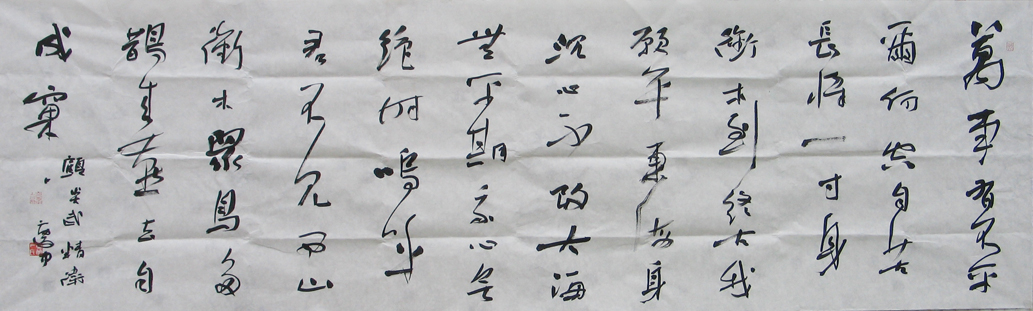 萬事有不平
爾何空自苦
長將一寸身
銜木到終古我
願平東海身
沉心不改大海
無平期我心無
絕時嗚呼
君不見西山
銜木眾鳥多
鵲來燕去自
成窠
顧炎武精衛